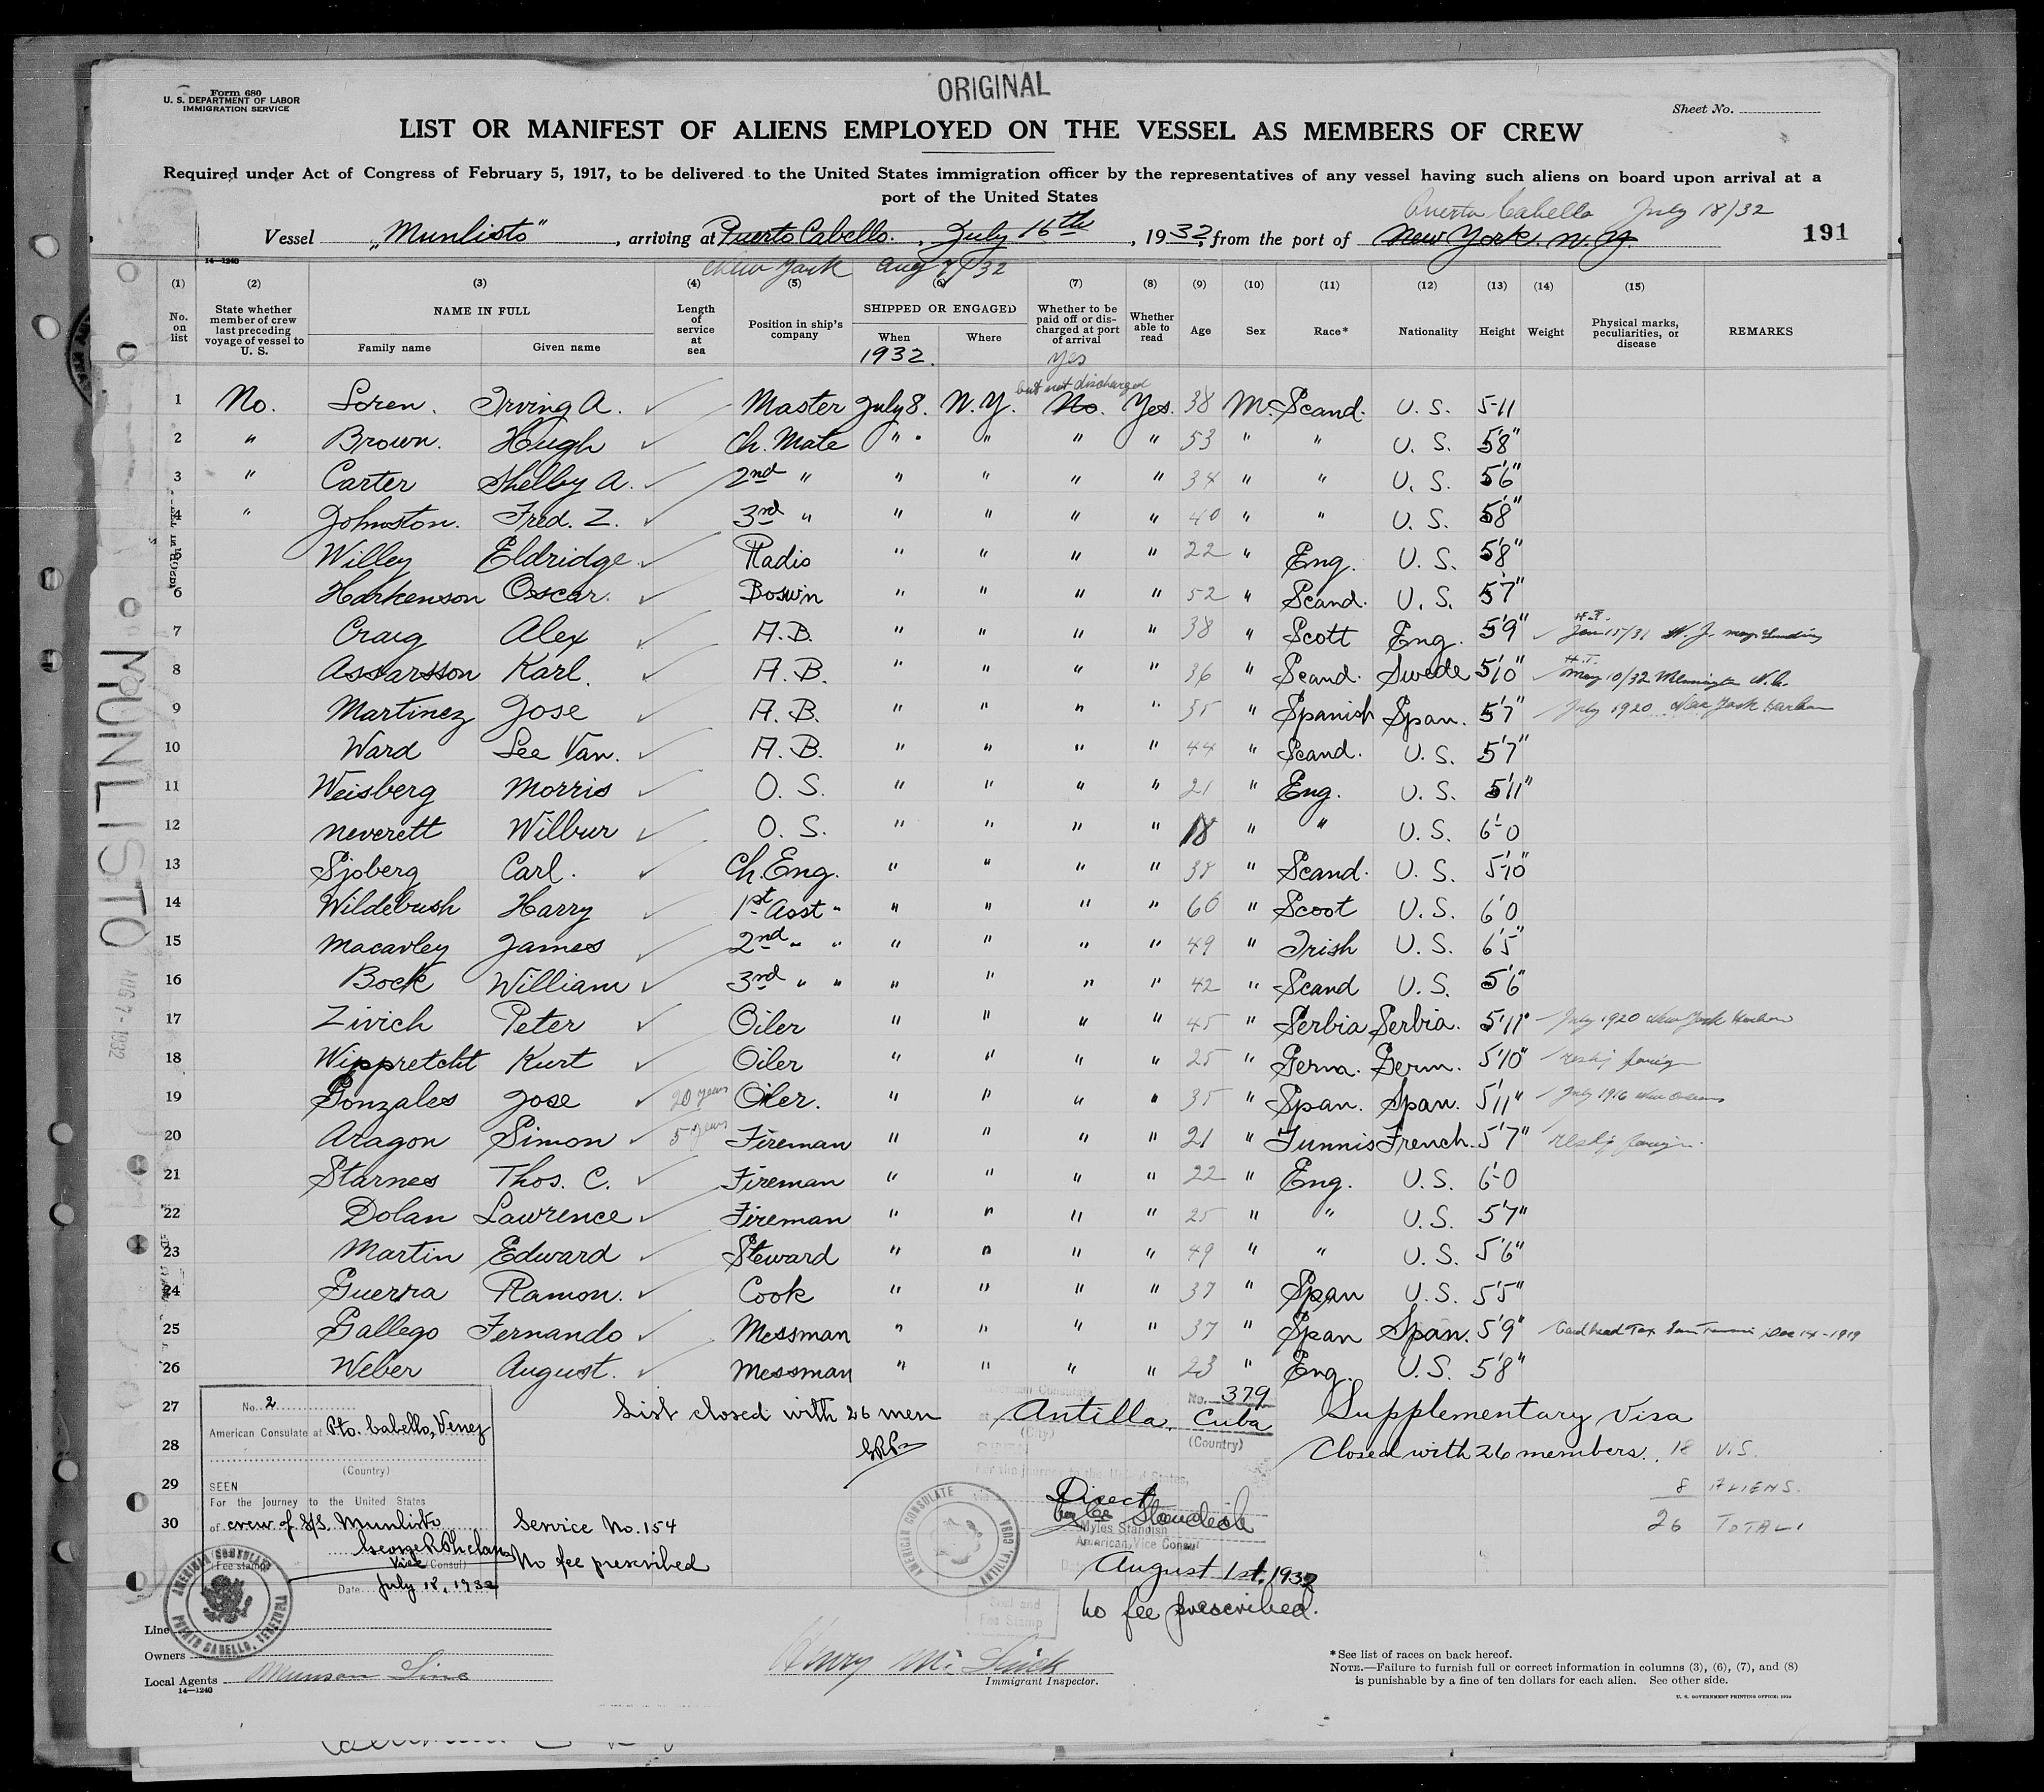 ORIGINAL
Form 680
U. S. DEPARTMENT OF LABOR
IMMIGRATION SERVICE
Sheet No.
LIST OR MANIFEST OF ALIENS EMPLOYED ON THE VESSEL AS MEMBERS OF CREW
Required under Act of Congress of February 5, 1917, to be delivered to the United States immigration officer by the representatives of any vessel having such aliens on board upon arrival at a
port of the United States
Puerto Cabello July 18/32
Vessel "Munlisto", arriving at Puerto Cabello, July 16th, 1932, from the port of New York. N. Y. 191
14—1240
New York Aug 7/32
(1) (2) (3) (4) (5) (6) (7) (8) (9) (10) (11) (12) (13) (14) (15)
No. on list
State whether member of crew last preceding voyage of vessel to U. S.
NAME IN FULL
Family name
Given name
Length of service at sea
Position in ship's company
SHIPPED OR ENGAGED
When
1932.
Where
Whether to be paid off or discharged at port of arrival
yes
but not discharged
Whether able to read
Age
Sex
Race*
Nationality
Height
Weight
Physical marks, peculiarities, or disease
REMARKS
1 No. Loren. Irving A. Master July 8. N.Y. No. Yes. 38 M. Scand. U. S. 5-11
2 " Brown. Hugh Ch. Mate " " " " 53 " " U. S. 5'8"
3 " Carter Shelby A. 2nd " " " " " 34 " " U. S. 5'6"
4 " Johnston. Fred. Z. 3rd " " " " " 40 " " U. S. 5'8"
5 Willey Eldridge Radio " " " " 22 " Eng. U. S. 5'8"
6 Harkenson Oscar. Boswn " " " " 52 " Scand. U. S. 5'7"
7 Craig Alex A.B. " " " " 38 " Scott Eng. 5'9" H.T. Jan 15/31
8 Assarsson Karl. A.B. " " " " 36 " Scand. Swede 5'10" H.T. May 10/32 N.C.
9 Martinez Jose A.B. " " " " 35 " Spanish Span. 5'7" July 1920 New York Harbor
10 Ward Lee Van. A.B. " " " " 44 " Scand. U. S. 5'7"
11 Weisberg Morris O. S. " " " " 21 " Eng. U. S. 5'11"
12 Neverett Wilbur O. S. " " " " 18 " " U. S. 6-0
13 Sjoberg Carl. Ch. Eng. " " " " 38 " Scand. U. S. 5-10"
14 Wildebush Harry 1st Asst " " " " " 60 " Scoot U. S. 6'0
15 Macavley James 2nd " " " " " " 49 " Irish U. S. 6'5"
16 Bock William 3rd " " " " " " 42 " Scand U. S. 5'6"
17 Zivich Peter Oiler " " " " 45 " Serbia Serbia. 5'11" July 1920 New York Harbor
18 Wippretcht Kurt Oiler " " " " 25 " Germ. Germ. 5'10" reship foreign
19 Gonzales Jose 20 years Oiler. " " " " 35 " Span. Span. 5'11" July 1916 New Orleans
20 Aragon Simon 5 years Fireman " " " " 21 " Tunnis French. 5'7" reship foreign
21 Starnes Thos. C. Fireman " " " " 22 " Eng. U. S. 6-0
22 Dolan Lawrence Fireman " " " " 25 " " U. S. 5'7"
23 Martin Edward Steward " " " " 49 " " U. S. 5'6"
24 Guerra Ramon. Cook " " " " 37 " Span U. S. 5'5"
25 Gallego Fernando Messman " " " " 37 " Span Span. 5'9" head tax Dec 14-1919
26 Weber August. Messman " " " " 23 " Eng. U. S. 5'8"
27
28
29
30
No. 2
American Consulate at Pto. Cabello, Venez
(Country)
SEEN
For the Journey to the United States
of crew of S/S. Munlisto
George R Phelan
Vice (Consul)
Fee stamp
Date July 18, 1932
AMERICAN CONSULATE PUERTO CABELLO, VENEZUELA
List closed with 26 men
GRP
Service No. 154
No fee prescribed
American Consulate
No. 379
Antilla, Cuba
(City) (Country)
For the journey to the United States,
Direct
Myles Standish
Myles Standish
American Vice Consul
August 1st, 1932
No fee prescribed.
Seal and
Fee Stamp
AMERICAN CONSULATE ANTILLA, CUBA
Supplementary Visa
Closed with 26 members.
18 U.S.
8 ALIENS.
26 TOTAL
Line
Owners
Local Agents Munson Line
14—1240
Immigrant Inspector.
*See list of races on back hereof.
NOTE.—Failure to furnish full or correct information in columns (3), (6), (7), and (8)
is punishable by a fine of ten dollars for each alien. See other side.
U. S. GOVERNMENT PRINTING OFFICE: 1929
MUNLISTO
AUG 7 - 1932